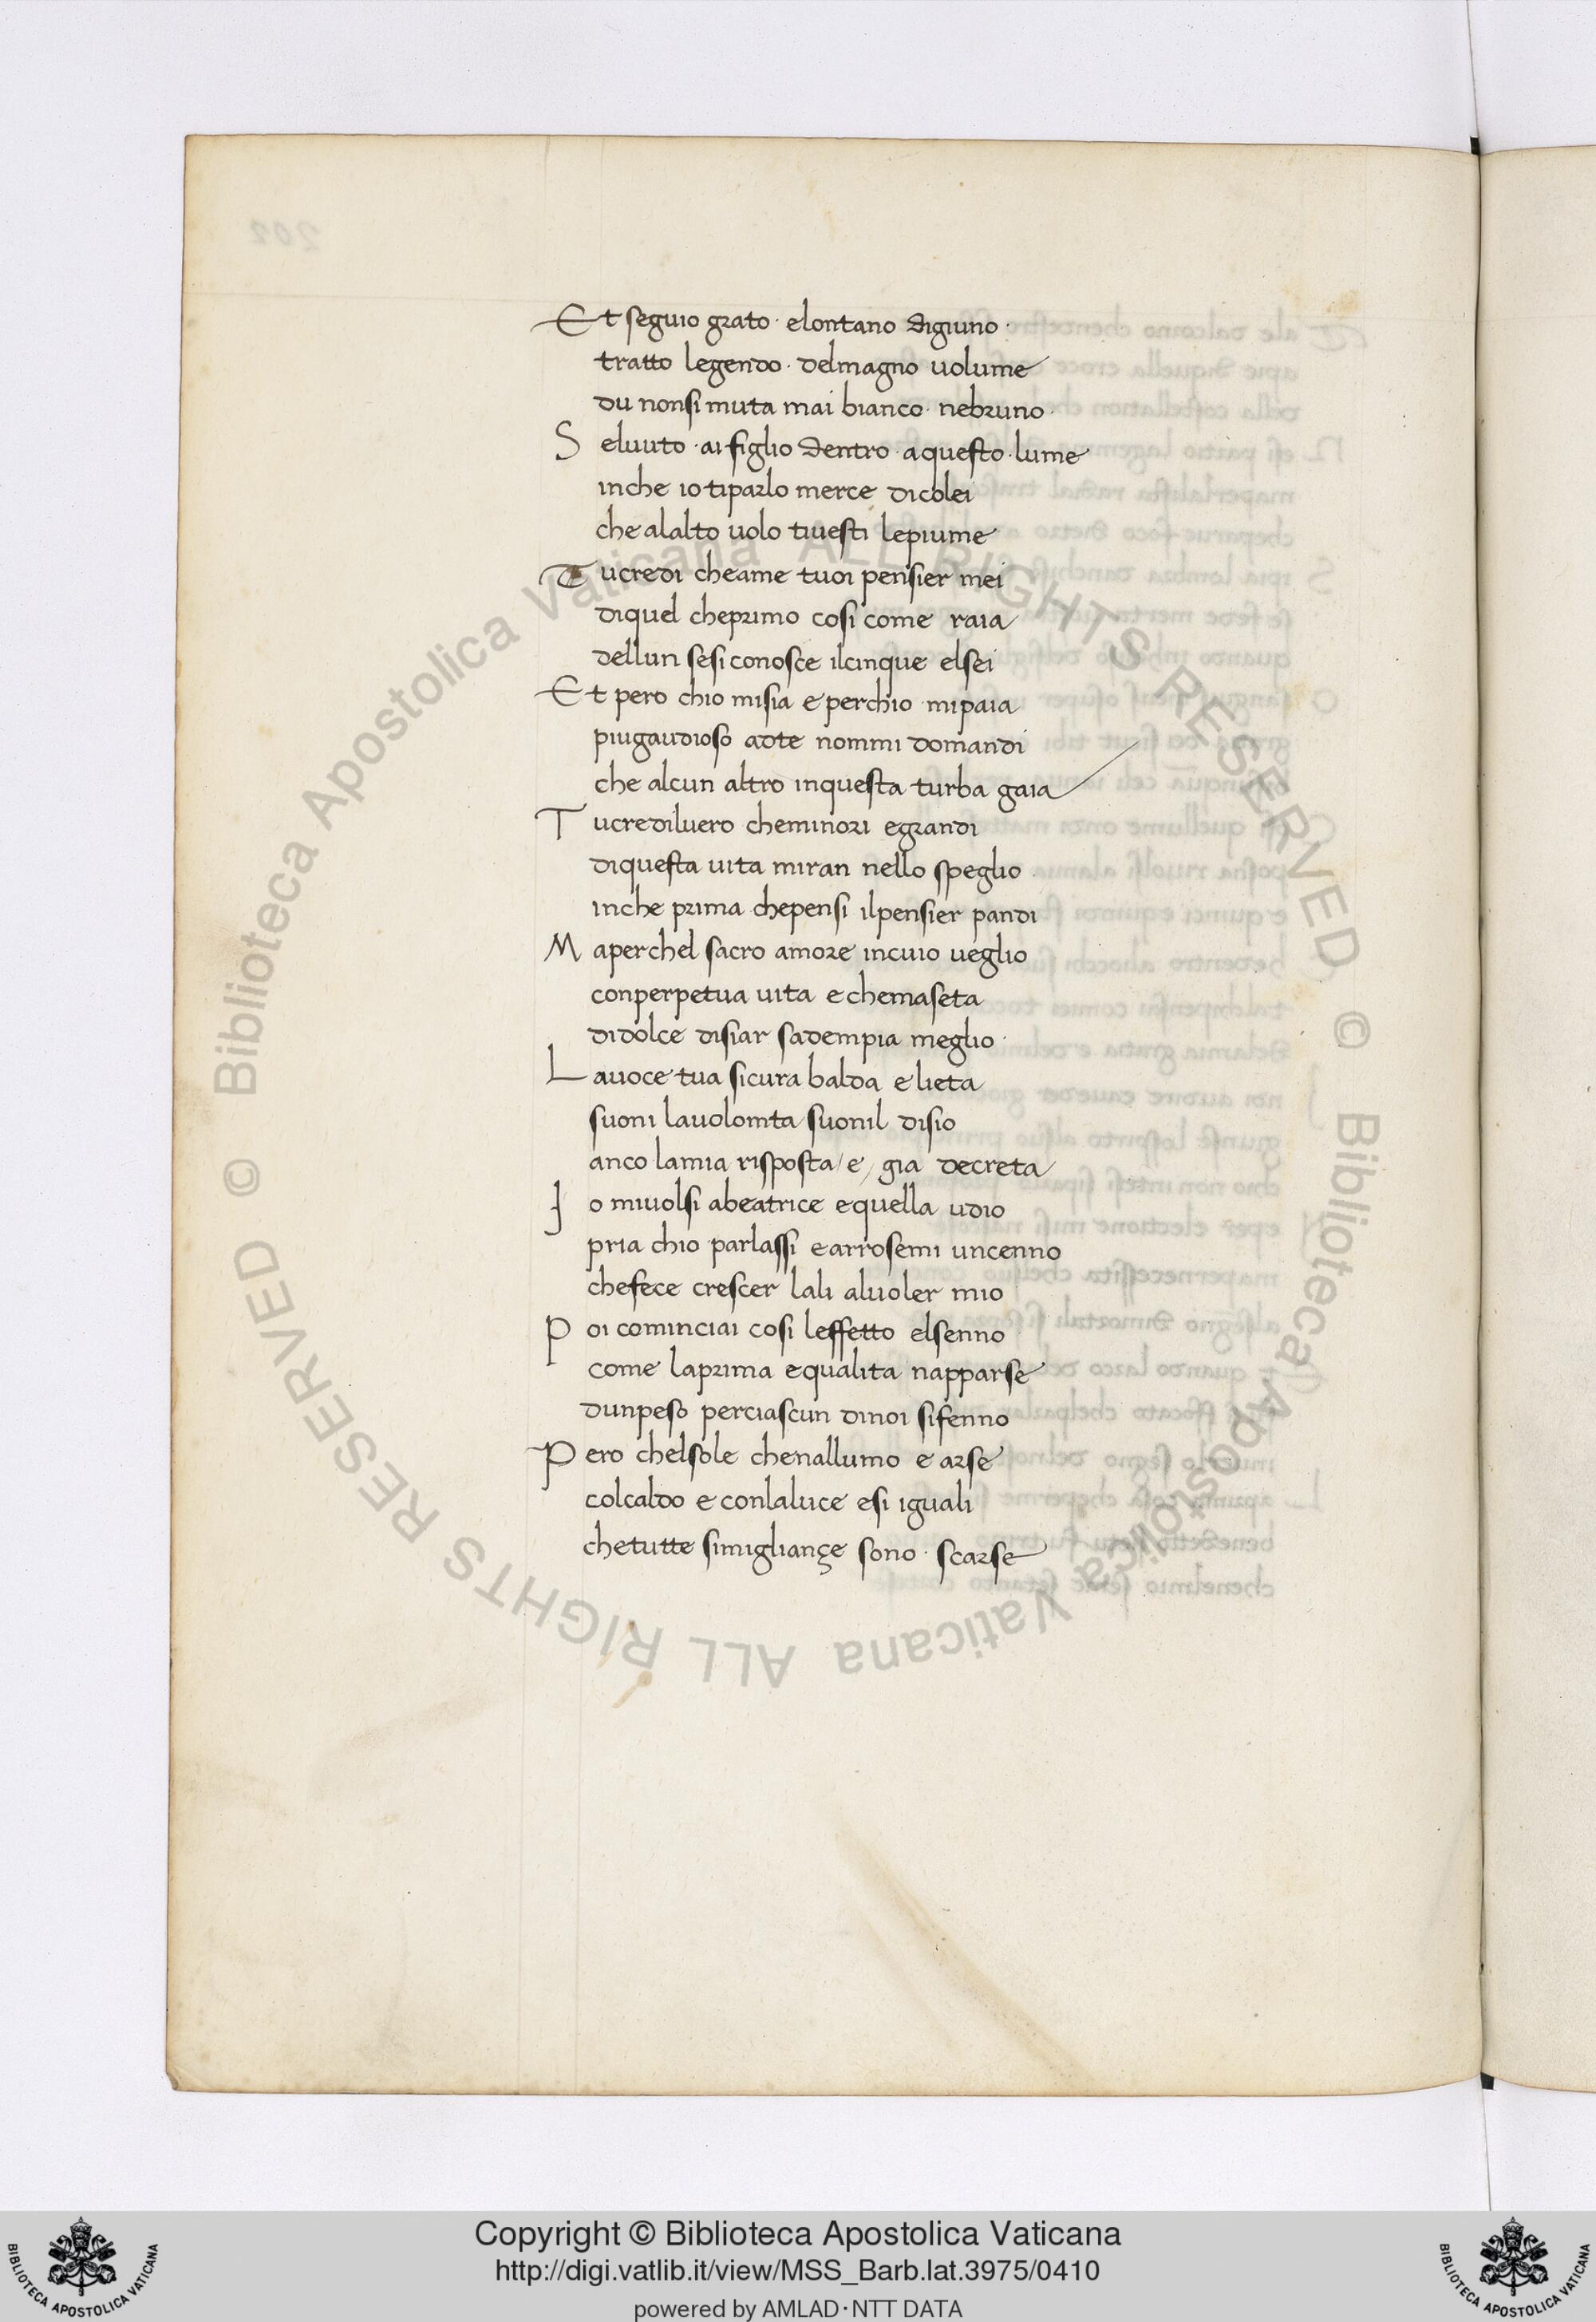 Et seguio grato · elontano digiuno ·
tratto legendo · delmagno uolume
du nonsi muta mai bianco · nebruno ·
S eluuto · ai figlio dentro · aquesto · lume
inche io tiparlo merce dicolei
che alalto uolo tiuesti lepiume
T ucredi cheame tuoi pensier mei
diquel cheprimo cosi come raia
dellun sesi conosce ilcinque elsei
Et pero chio misia e perchio mipaia
piugaudioso adte nommi domandi
che alcun altro inquesta turba gaia
T ucrediluero cheminori egrandi
diquesta uita miran nello speglio
inche prima chepensi ilpensier pandi
M aperchel sacro amore incuio ueglio
conperpetua uita e chemaseta
didolce disiar sadempia meglio ·
L auoce tua sicura balda e lieta
suoni lauolomta suonil disio
anco lamia risposta / e / gia decreta
J o miuolsi abeatrice equella udio
pria chio parlassi earrosemi uncenno
chefece crescer lali aluoler mio
P oi cominciai cosi leffetto elsenno
come laprima equalita napparse
dunpeso perciascun dinoi sifenno
P ero chelsole chenallumo e arse
colcaldo e conlaluce esi iguali
chetutte simigliançe sono · scarse
© Biblioteca Apostolica Vaticana ALL RIGHTS RESERVED © Biblioteca Apostolica Vaticana ALL RIGHTS RESERVED
Copyright © Biblioteca Apostolica Vaticana
http://digi.vatlib.it/view/MSS_Barb.lat.3975/0410
powered by AMLAD·NTT DATA
BIBLIOTECA APOSTOLICA VATICANA
BIBLIOTECA APOSTOLICA VATICANA